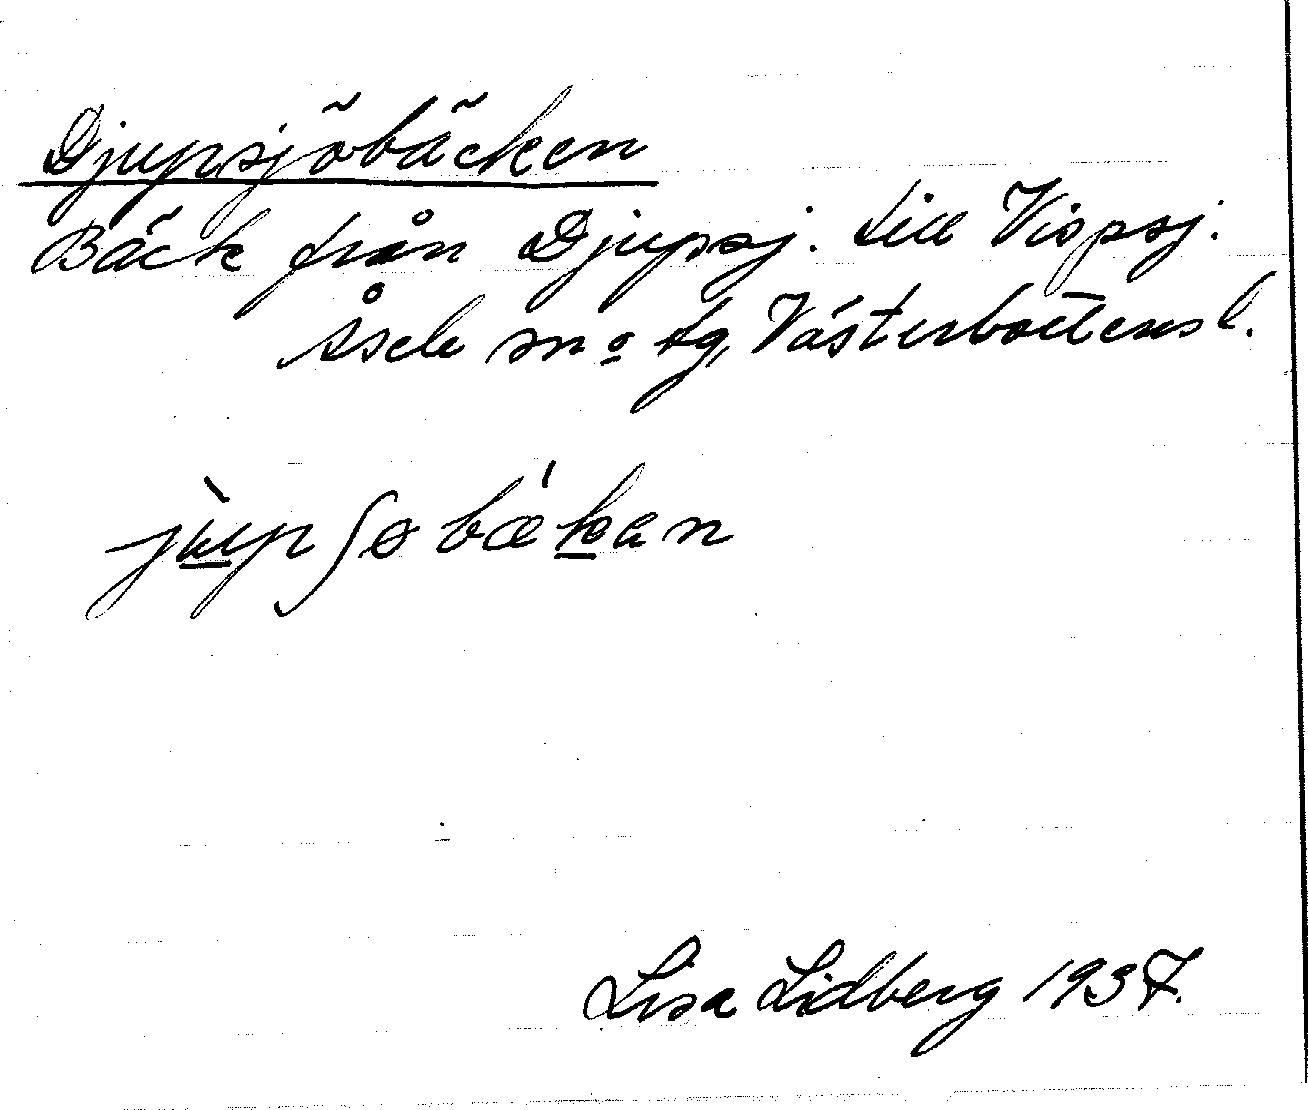 Djupsjöbäcken
Bäck från Djupsj. till Vispsj.
Åsele sn o tg, Västerbottens l.
jùpʃøbǽkan
Lisa Lidberg 1937.